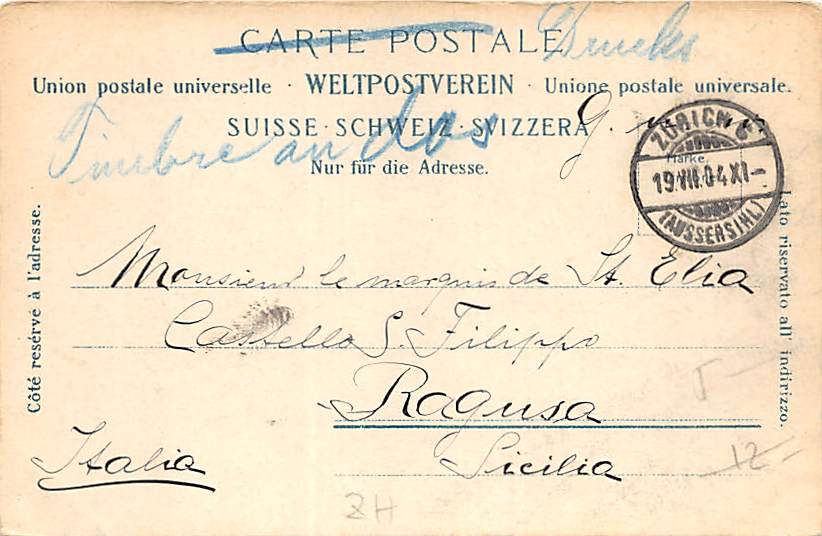 CARTE POSTALE Drucks
Union postale universelle · WELTPOSTVEREIN · Unione postale universale.
Timbre au dos
SUISSE · SCHWEIZ · SVIZZERA
Nur für die Adresse.
ZÜRICH 6
Marke
19.VII.04.XI-
(AUSSERSIHL)
Côté resérvé à l'adresse.
Lato riservato all' indirizzo.
Monsieur le marquis de St. Elia
Castello S. Filippo
Ragusa
Italia
Sicilia
5-
12-
ZH